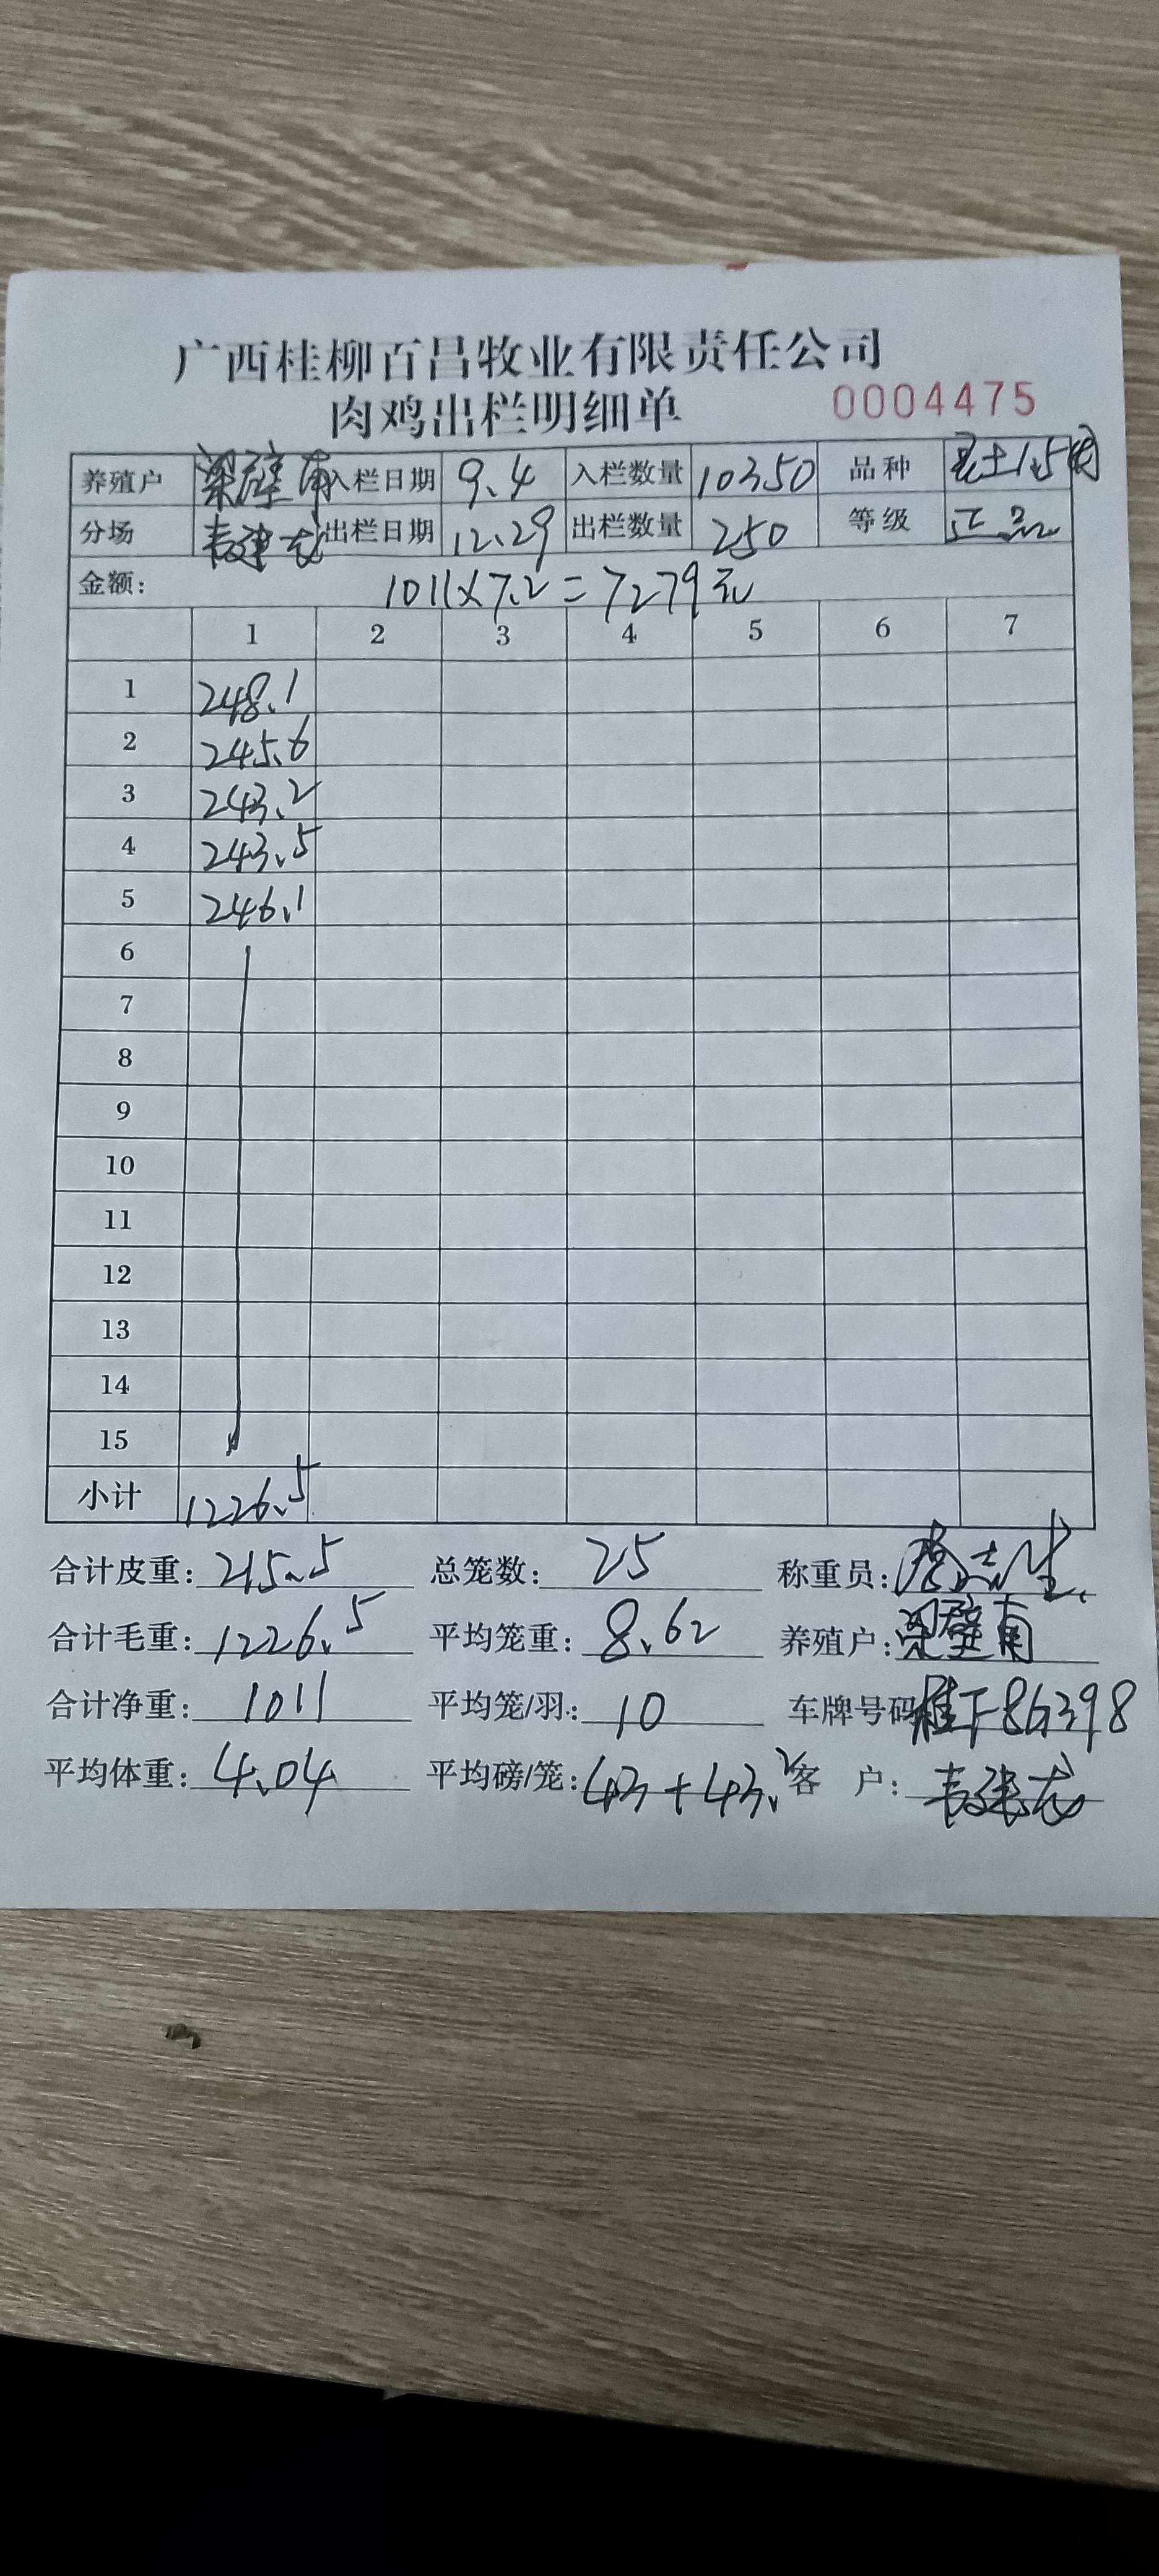 广西桂柳百昌牧业有限责任公司
肉鸡出栏明细单 0004475
养殖户 梁壁南 入栏日期 9.4 入栏数量 10350 品种 土1.5
分场 韦建龙 出栏日期 12.29 出栏数量 250 等级 正品
金额: 1011×7.2=7279元
1 2 3 4 5 6 7
1 248.1
2 245.6
3 243.2
4 243.5
5 246.1
6
7
8
9
10
11
12
13
14
15
小计 1226.5
合计皮重: 215.5 总笼数: 25 称重员:
合计毛重: 1226.5 平均笼重: 8.62 养殖户: 梁壁南
合计净重: 1011 平均笼/羽: 10 车牌号码 桂F8G398
平均体重: 4.04 平均磅/笼: 43+43.2 客 户: 韦建龙